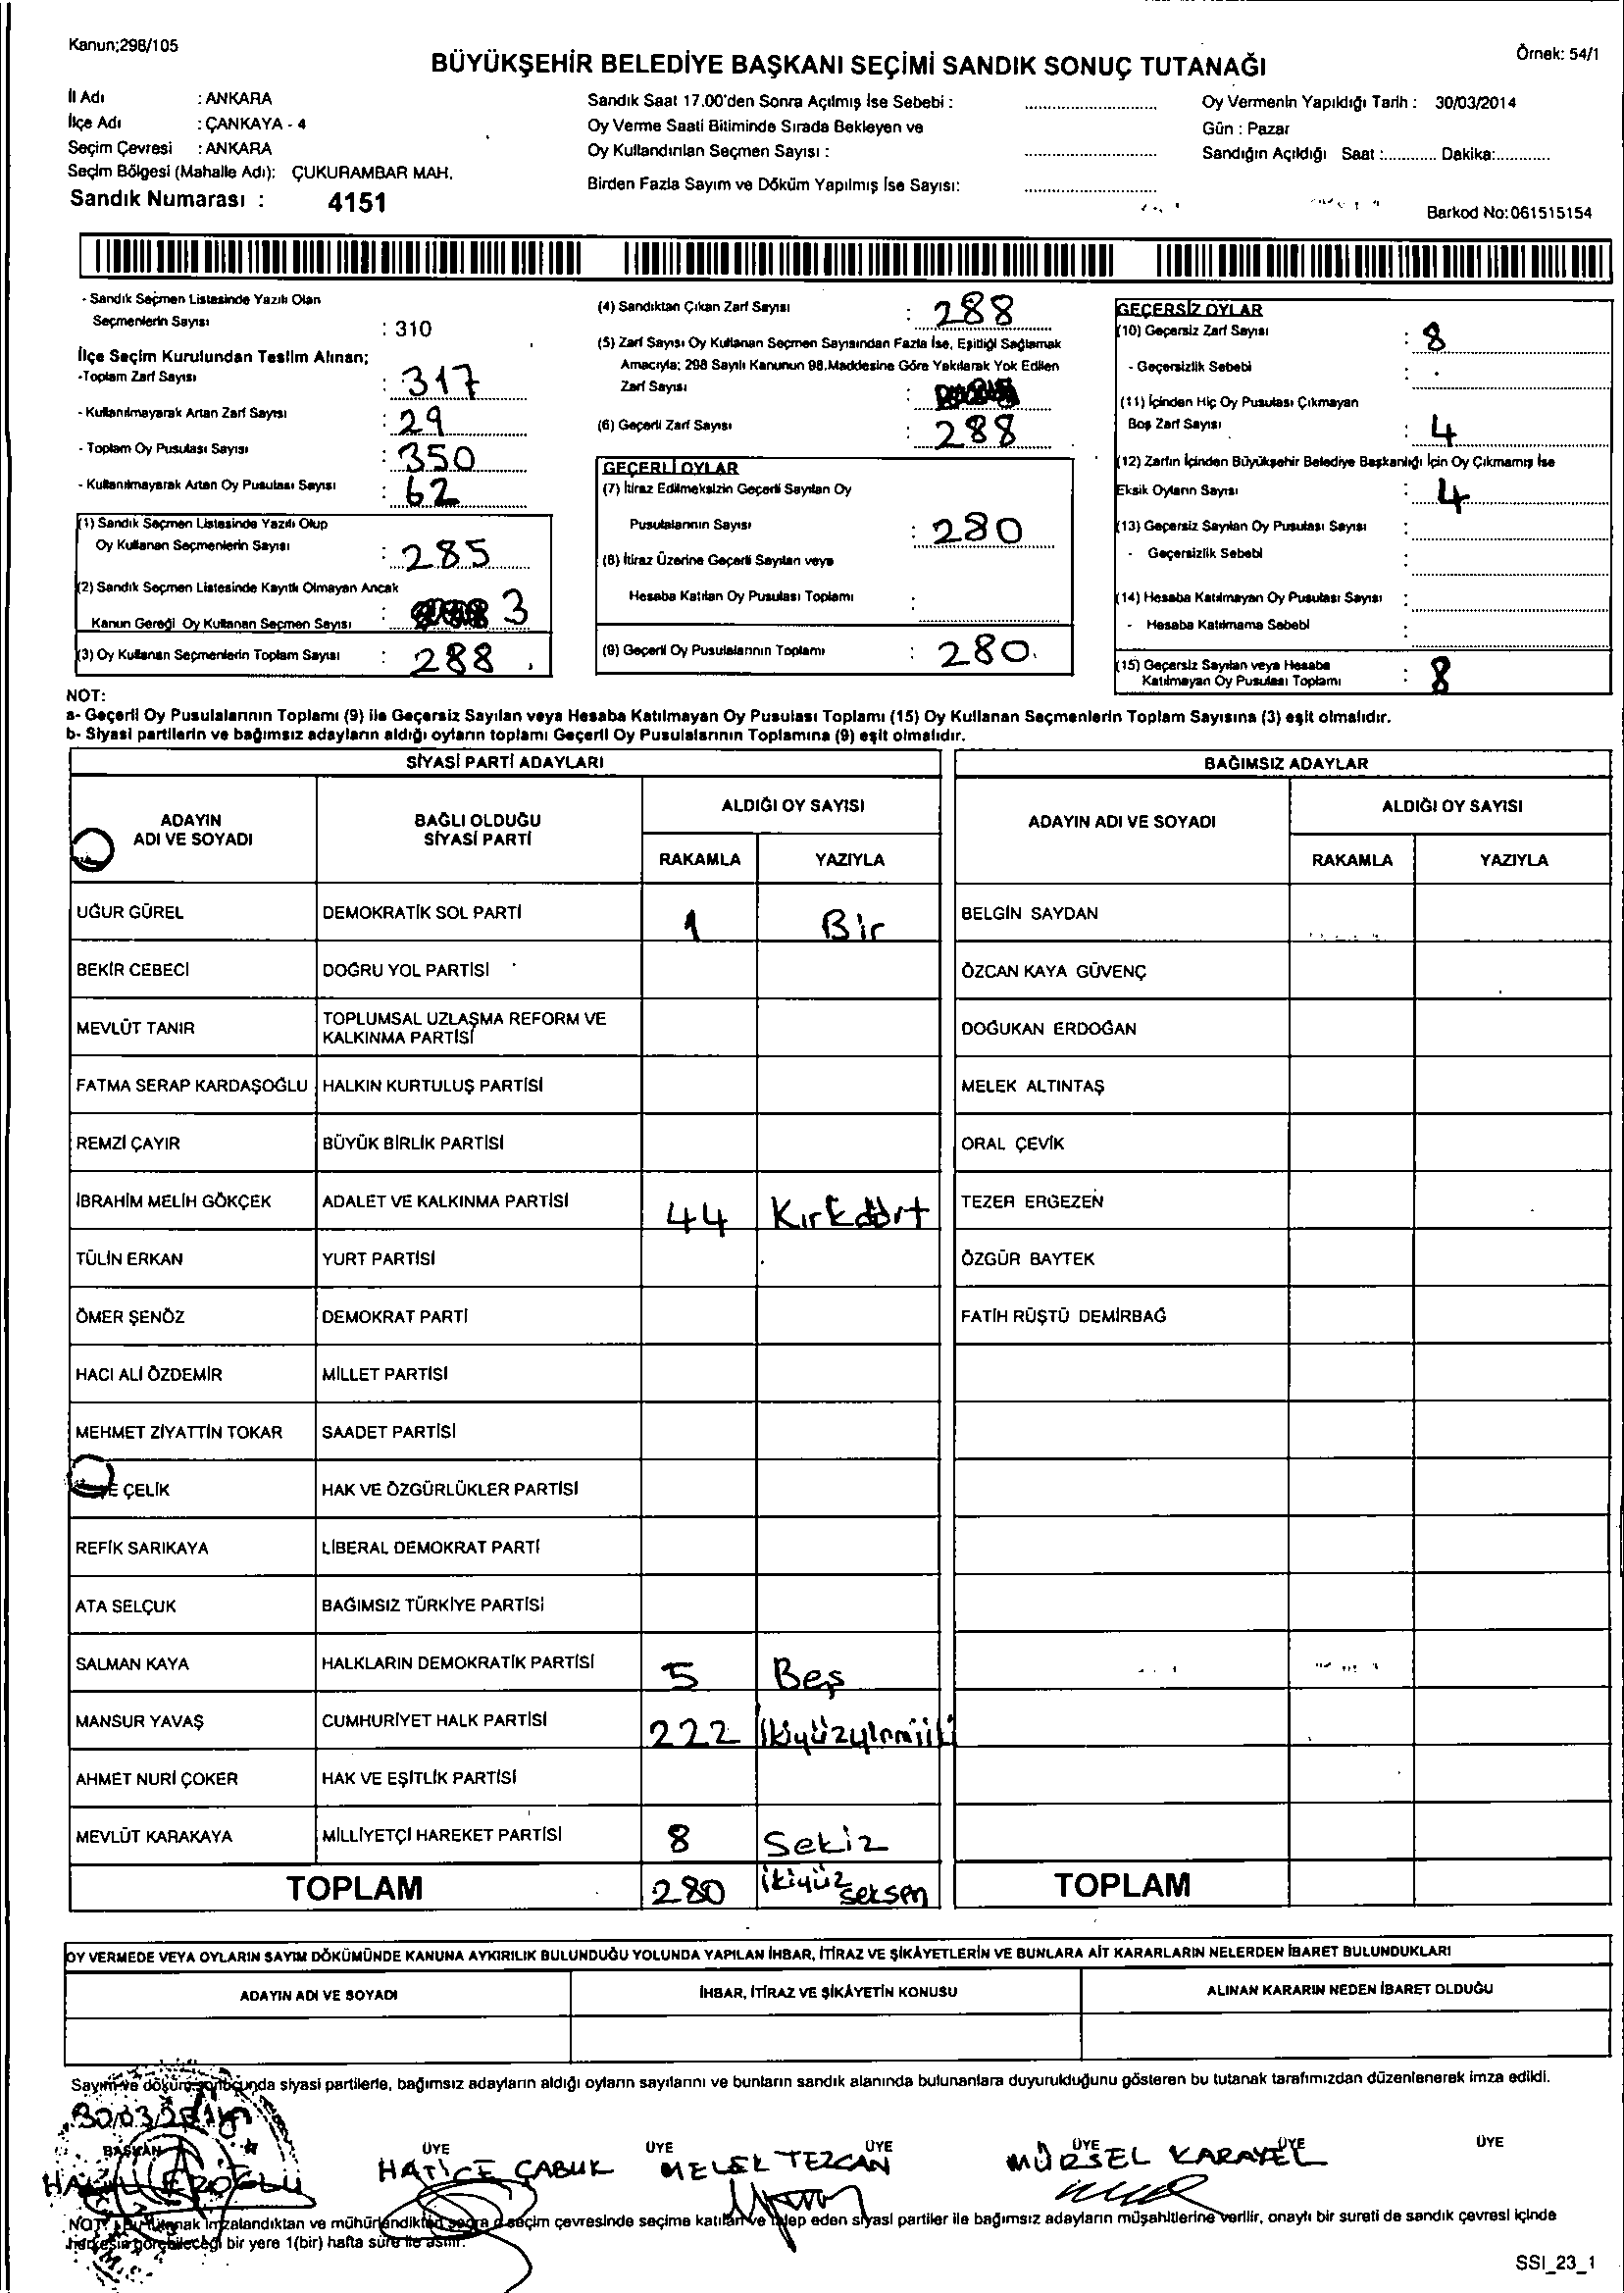 Kanun;298/105
Örnek: 54/1
BÜYÜKŞEHİR BELEDİYE BAŞKANI SEÇİMİ SANDIK SONUÇ TUTANAĞI
İl Adı : ANKARA
İlçe Adı : ÇANKAYA - 4
Seçim Çevresi : ANKARA
Seçim Bölgesi (Mahalle Adı): ÇUKURAMBAR MAH.
Sandık Numarası : 4151
Sandık Saat 17.00'den Sonra Açılmış İse Sebebi :
Oy Verme Saati Bitiminde Sırada Bekleyen ve
Oy Kullandırılan Seçmen Sayısı :
Birden Fazla Sayım ve Döküm Yapılmış İse Sayısı:
Oy Vermenin Yapıldığı Tarih : 30/03/2014
Gün : Pazar
Sandığın Açıldığı Saat :............ Dakika:............
Barkod No:061515154
- Sandık Seçmen Listesinde Yazılı Olan
Seçmenlerin Sayısı : 310
İlçe Seçim Kurulundan Teslim Alınan;
-Toplam Zarf Sayısı : 317
- Kullanılmayarak Artan Zarf Sayısı : 29
- Toplam Oy Pusulası Sayısı : 350
- Kullanılmayarak Artan Oy Pusulası Sayısı : 62
(1) Sandık Seçmen Listesinde Yazılı Olup
Oy Kullanan Seçmenlerin Sayısı : 285
(2) Sandık Seçmen Listesinde Kayıtlı Olmayan Ancak
Kanun Gereği Oy Kullanan Seçmen Sayısı : 3
(3) Oy Kullanan Seçmenlerin Toplam Sayısı : 288
(4) Sandıktan Çıkan Zarf Sayısı : 288
(5) Zarf Sayısı Oy Kullanan Seçmen Sayısından Fazla İse, Eşitliği Sağlamak
Amacıyla; 298 Sayılı Kanunun 98.Maddesine Göre Yakılarak Yok Edilen
Zarf Sayısı :
(6) Geçerli Zarf Sayısı : 288
GEÇERLİ OYLAR
(7) İtiraz Edilmeksizin Geçerli Sayılan Oy
Pusulalarının Sayısı : 280
(8) İtiraz Üzerine Geçerli Sayılan veya
Hesaba Katılan Oy Pusulası Toplamı :
(9) Geçerli Oy Pusulalarının Toplamı : 280
GEÇERSİZ OYLAR
(10) Geçersiz Zarf Sayısı : 8
- Geçersizlik Sebebi :
(11) İçinden Hiç Oy Pusulası Çıkmayan
Boş Zarf Sayısı : 4
(12) Zarfın İçinden Büyükşehir Belediye Başkanlığı İçin Oy Çıkmamış İse
Eksik Oyların Sayısı : 4
(13) Geçersiz Sayılan Oy Pusulası Sayısı :
- Geçersizlik Sebebi :
(14) Hesaba Katılmayan Oy Pusulası Sayısı :
- Hesaba Katılmama Sebebi :
(15) Geçersiz Sayılan veya Hesaba
Katılmayan Oy Pusulası Toplamı : 8
NOT:
a- Geçerli Oy Pusulalarının Toplamı (9) ile Geçersiz Sayılan veya Hesaba Katılmayan Oy Pusulası Toplamı (15) Oy Kullanan Seçmenlerin Toplam Sayısına (3) eşit olmalıdır.
b- Siyasi partilerin ve bağımsız adayların aldığı oyların toplamı Geçerli Oy Pusulalarının Toplamına (9) eşit olmalıdır.
SİYASİ PARTİ ADAYLARI
ADAYIN ADI VE SOYADI
BAĞLI OLDUĞU SİYASİ PARTİ
ALDIĞI OY SAYISI
RAKAMLA YAZIYLA
UĞUR GÜREL DEMOKRATİK SOL PARTİ 1 Bir
BEKİR CEBECİ DOĞRU YOL PARTİSİ
MEVLÜT TANIR TOPLUMSAL UZLAŞMA REFORM VE
KALKINMA PARTİSİ
FATMA SERAP KARDAŞOĞLU HALKIN KURTULUŞ PARTİSİ
REMZİ ÇAYIR BÜYÜK BİRLİK PARTİSİ
İBRAHİM MELİH GÖKÇEK ADALET VE KALKINMA PARTİSİ 44 Kırkdört
TÜLİN ERKAN YURT PARTİSİ
ÖMER ŞENÖZ DEMOKRAT PARTİ
HACI ALİ ÖZDEMİR MİLLET PARTİSİ
MEHMET ZİYATTİN TOKAR SAADET PARTİSİ
ÇELİK HAK VE ÖZGÜRLÜKLER PARTİSİ
REFİK SARIKAYA LİBERAL DEMOKRAT PARTİ
ATA SELÇUK BAĞIMSIZ TÜRKİYE PARTİSİ
SALMAN KAYA HALKLARIN DEMOKRATİK PARTİSİ 5 Beş
MANSUR YAVAŞ CUMHURİYET HALK PARTİSİ 222
AHMET NURİ ÇOKER HAK VE EŞİTLİK PARTİSİ
MEVLÜT KARAKAYA MİLLİYETÇİ HAREKET PARTİSİ 8 Sekiz
TOPLAM 280 ikiyüz seksen
BAĞIMSIZ ADAYLAR
ADAYIN ADI VE SOYADI
ALDIĞI OY SAYISI
RAKAMLA YAZIYLA
BELGİN SAYDAN
ÖZCAN KAYA GÜVENÇ
DOĞUKAN ERDOĞAN
MELEK ALTINTAŞ
ORAL ÇEVİK
TEZER ERGEZEN
ÖZGÜR BAYTEK
FATİH RÜŞTÜ DEMİRBAĞ
TOPLAM
OY VERMEDE VEYA OYLARIN SAYIM DÖKÜMÜNDE KANUNA AYKIRILIK BULUNDUĞU YOLUNDA YAPILAN İHBAR, İTİRAZ VE ŞİKÂYETLERİN VE BUNLARA AİT KARARLARIN NELERDEN İBARET BULUNDUKLARI
ADAYIN ADI VE SOYADI
İHBAR, İTİRAZ VE ŞİKÂYETİN KONUSU
ALINAN KARARIN NEDEN İBARET OLDUĞU
Sayım ve döküm sonucunda siyasi partilerle, bağımsız adayların aldığı oyların sayılarını ve bunların sandık alanında bulunanlara duyurulduğunu gösteren bu tutanak tarafımızdan düzenlenerek imza edildi.
30/03/2014
BAŞKAN ÜYE ÜYE ÜYE ÜYE ÜYE ÜYE
EROĞLU HATİCE ÇABUK MELEK TEZCAN MÜRSEL KARAYEL
NOT: Bu tutanak imzalandıktan ve mühürlendikten sonra o seçim çevresinde seçime katılan ve talep eden siyasi partiler ile bağımsız adayların müşahitlerine verilir, onaylı bir sureti de sandık çevresi içinde
herkesin görebileceği bir yere 1(bir) hafta süre ile asılır.
SSI_23_1